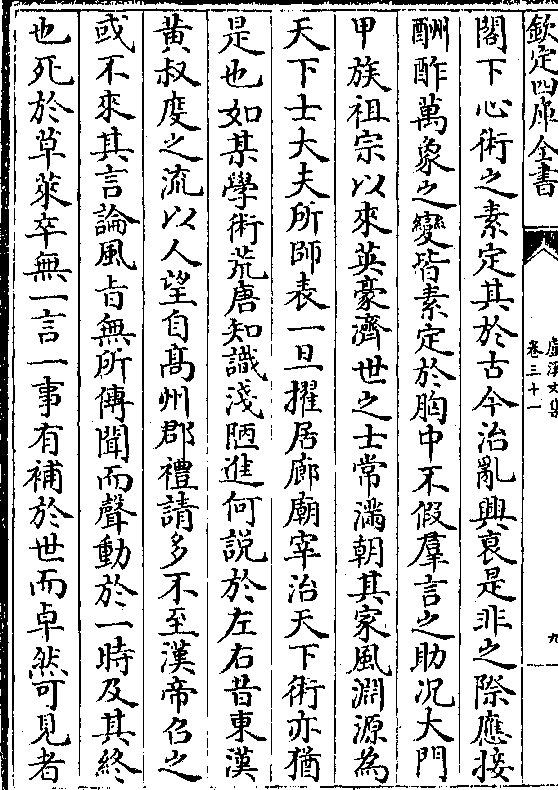 欽定四庫全書
閣下心術之素定其於古今治亂興衰是非之際應接
酬酢萬象之變皆素定於胸中不假羣言之助况大門
甲族祖宗以來英豪濟世之士常滿朝其家風淵源為
天下士大夫所師表一旦擢居廊廟宰治天下術亦猶
是也如某學術荒唐知識淺陋進何說於左右昔東漢
黄叔度之流以人望自髙州郡禮請多不至漢帝召之
或不來其言論風㫖無所傳聞而聲動於一時及其終
也死於草萊卒無一言一事有補於世而卓然可見者
盧溪文集
卷三十一
九